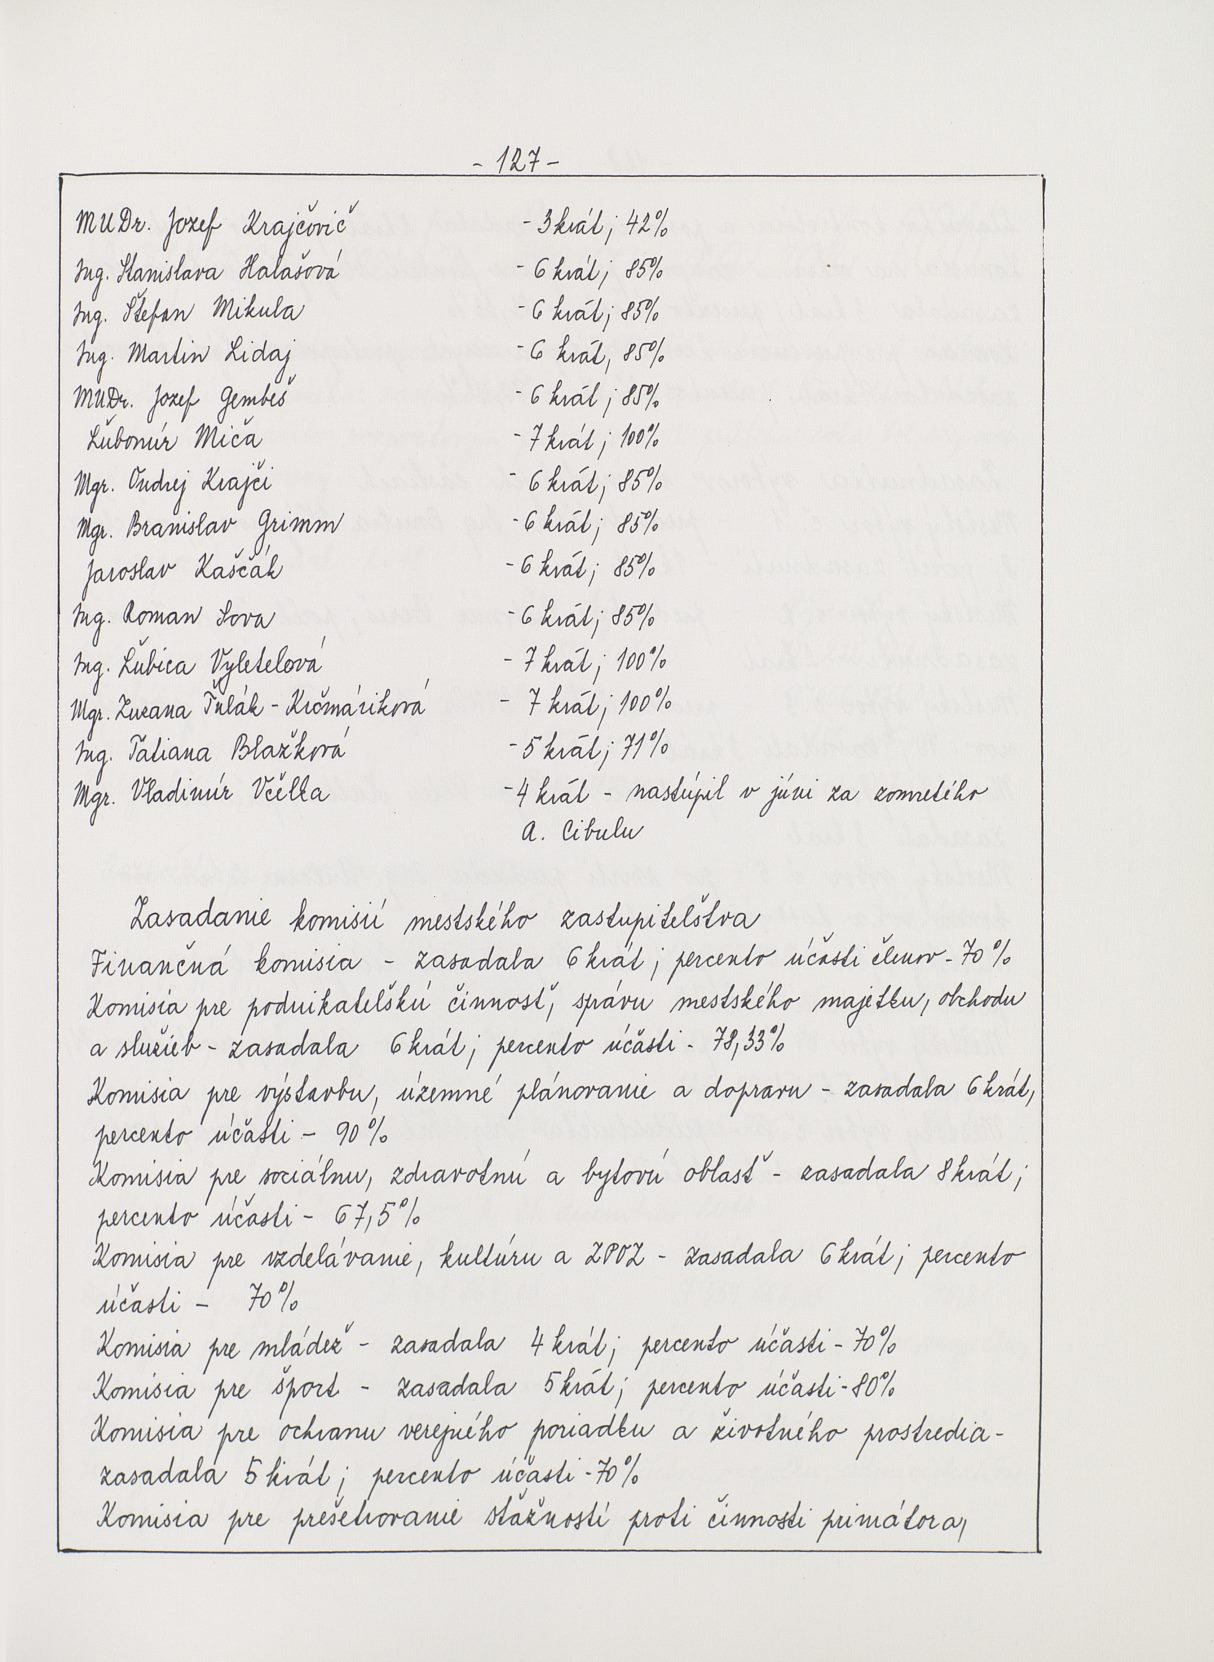 - 127 -
MUDr. Jozef Krajčovič - 3 krát; 42%
Ing. Stanislava Halašová - 6 krát; 85%
Ing. Štefan Mikula - 6 krát; 85%
Ing. Martin Lidaj - 6 krát, 85%
MUDr. Jozef Gembeš - 6 krát; 85%
Ľubomír Miča - 7 krát; 100%
Mgr. Ondrej Krajči - 6 krát; 85%
Mgr. Branislav Grimm - 6 krát; 85%
Jaroslav Kaščák - 6 krát; 85%
Ing. Roman Sova - 6 krát; 85%
Ing. Ľubica Vyletelová - 7 krát; 100%
Mgr. Zuzana Ťulák - Krčmáriková - 7 krát; 100%
Ing. Tatiana Blažková - 5 krát; 71%
Mgr. Vladimír Včelka - 4 krát - nastúpil v júni za zomretého
A. Cibulu
Zasadanie komisií mestského zastupiteľstva
Finančná komisia - zasadala 6 krát; percento účasti členov - 70%
Komisia pre podnikateľskú činnosť, správu mestského majetku, obchodu
a služieb - zasadala 6 krát; percento účasti - 78,33%
Komisia pre výstavbu, územné plánovanie a dopravu - zasadala 6 krát,
percento účasti - 90%
Komisia pre sociálnu, zdravotnú a bytovú oblasť - zasadala 8 krát;
percento účasti - 67,5%
Komisia pre vzdelávanie, kultúru a ZPOZ - zasadala 6 krát; percento
účasti - 70%
Komisia pre mládež - zasadala 4 krát; percento účasti - 70%
Komisia pre šport - zasadala 5 krát; percento účasti - 80%
Komisia pre ochranu verejného poriadku a životného prostredia -
zasadala 5 krát; percento účasti - 70%
Komisia pre prešetrovanie sťažností proti činnosti primátora,